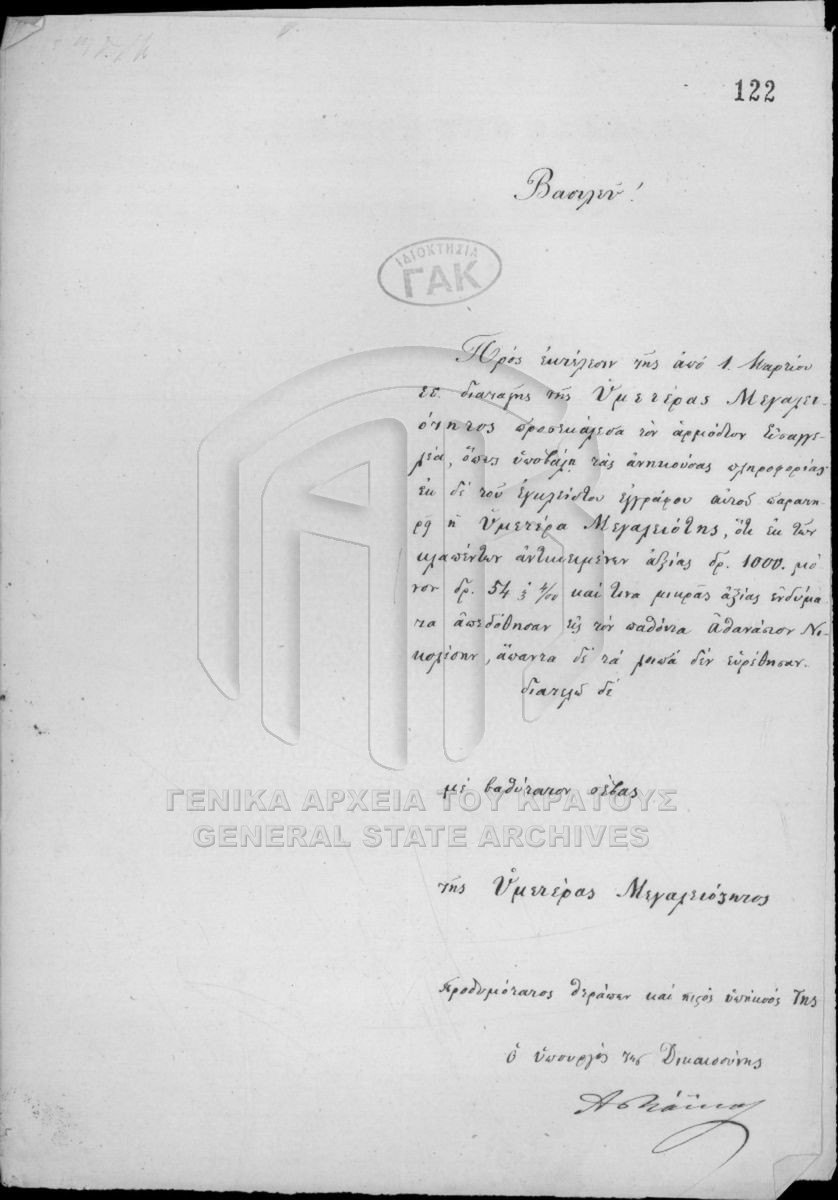 122
Βασιλεῦ!
ΙΔΙΟΚΤΗΣΙΑ
ΓΑΚ
Πρός ἐκτέλεσιν τῆς ἀπό 1. Μαρτίου
ἔ.ἔ. διαταγῆς τῆς Ὑμετέρας Μεγαλει-
ότητος προσεκάλεσα τὸν ἁρμόδιον Εἰσαγγε-
λέα, ὅπως ὑποβάλῃ τὰς ἀνηκούσας πληροφορίας
ἐκ δὲ τοῦ ἐγκλείστου ἐγγράφου αὐτοῦ παρατη-
ρεῖ ἡ Ὑμετέρα Μεγαλειότης, ὅτι ἐκ τῶν
κλαπέντων ἀντικειμένων ἀξίας δρ. 1000. μό
νον δρ. 54 καί τινα μικρᾶς ἀξίας ἐνδύμα
τα ἀπεδόθησαν εἰς τὸν παθόντα Ἀθανάσιον Νι-
, ἅπαντα δὲ τὰ λοιπά δέν εὑρέθησαν.
Διατελῶ δέ
μέ βαθύτατον σέβας
ΓΕΝΙΚΑ ΑΡΧΕΙΑ ΤΟΥ ΚΡΑΤΟΥΣ
GENERAL STATE ARCHIVES
τῆς Ὑμετέρας Μεγαλειότητος
προθυμότατος θεράπων καί πιστός ὑπήκοός Της
ὁ ὑπουργός τῆς Δικαιοσύνης